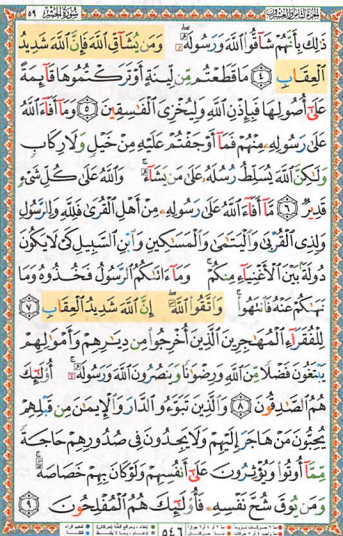 سُورَةُ الحَشْرِ ٥٩
الجزء الثامن والعشرون
ذَٰلِكَ بِأَنَّهُمْ شَاقُّوا۟ ٱللَّهَ وَرَسُولَهُۥ ۖ وَمَن يُشَآقِّ ٱللَّهَ فَإِنَّ ٱللَّهَ شَدِيدُ
ٱلْعِقَابِ ٤ مَا قَطَعْتُم مِّن لِّينَةٍ أَوْ تَرَكْتُمُوهَا قَآئِمَةً
عَلَىٰٓ أُصُولِهَا فَبِإِذْنِ ٱللَّهِ وَلِيُخْزِىَ ٱلْفَٰسِقِينَ ٥ وَمَآ أَفَآءَ ٱللَّهُ
عَلَىٰ رَسُولِهِۦ مِنْهُمْ فَمَآ أَوْجَفْتُمْ عَلَيْهِ مِنْ خَيْلٍ وَلَا رِكَابٍ
وَلَٰكِنَّ ٱللَّهَ يُسَلِّطُ رُسُلَهُۥ عَلَىٰ مَن يَشَآءُ ۚ وَٱللَّهُ عَلَىٰ كُلِّ شَىْءٍ
قَدِيرٌ ٦ مَّآ أَفَآءَ ٱللَّهُ عَلَىٰ رَسُولِهِۦ مِنْ أَهْلِ ٱلْقُرَىٰ فَلِلَّهِ وَلِلرَّسُولِ
وَلِذِى ٱلْقُرْبَىٰ وَٱلْيَتَٰمَىٰ وَٱلْمَسَٰكِينِ وَٱبْنِ ٱلسَّبِيلِ كَىْ لَا يَكُونَ
دُولَةًۢ بَيْنَ ٱلْأَغْنِيَآءِ مِنكُمْ ۚ وَمَآ ءَاتَىٰكُمُ ٱلرَّسُولُ فَخُذُوهُ وَمَا
نَهَىٰكُمْ عَنْهُ فَٱنتَهُوا۟ ۚ وَٱتَّقُوا۟ ٱللَّهَ ۖ إِنَّ ٱللَّهَ شَدِيدُ ٱلْعِقَابِ ٧
لِلْفُقَرَآءِ ٱلْمُهَٰجِرِينَ ٱلَّذِينَ أُخْرِجُوا۟ مِن دِيَٰرِهِمْ وَأَمْوَٰلِهِمْ
يَبْتَغُونَ فَضْلًا مِّنَ ٱللَّهِ وَرِضْوَٰنًا وَيَنصُرُونَ ٱللَّهَ وَرَسُولَهُۥٓ ۚ أُو۟لَٰٓئِكَ
هُمُ ٱلصَّٰدِقُونَ ٨ وَٱلَّذِينَ تَبَوَّءُو ٱلدَّارَ وَٱلْإِيمَٰنَ مِن قَبْلِهِمْ
يُحِبُّونَ مَنْ هَاجَرَ إِلَيْهِمْ وَلَا يَجِدُونَ فِى صُدُورِهِمْ حَاجَةً
مِّمَّآ أُوتُوا۟ وَيُؤْثِرُونَ عَلَىٰٓ أَنفُسِهِمْ وَلَوْ كَانَ بِهِمْ خَصَاصَةٌ ۚ
وَمَن يُوقَ شُحَّ نَفْسِهِۦ فَأُو۟لَٰٓئِكَ هُمُ ٱلْمُفْلِحُونَ ٩
٥٤٦